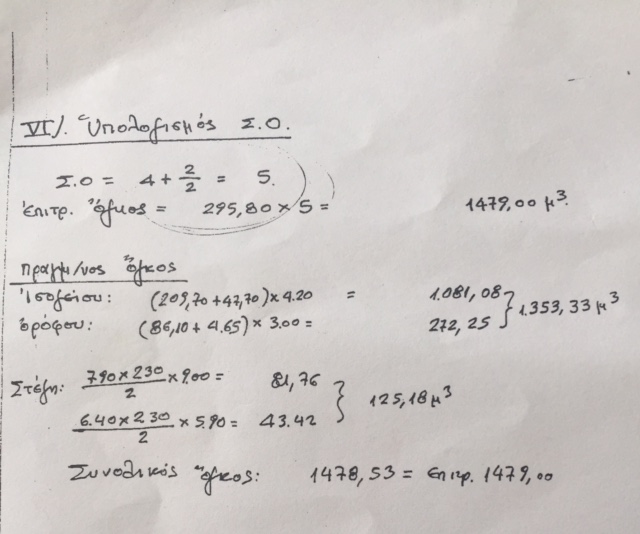 VI/. Ὑπολογισμός Σ.Ο.
Σ.Ο = 4 + 2/2 = 5.
Ἐπιτρ. Ὄγκος = 295,80 × 5 = 1479,00 μ³.
Πραγμ/νος Ὄγκος
Ἰσογείου: (209,70 + 47,70) × 4.20 = 1.081,08
ὀρόφου: (86,10 + 4.65) × 3.00 = 272,25 } 1.353,33 μ³
Στέγη: 7.90 × 2.30 / 2 × 9.00 = 81,76
6.40 × 2.30 / 2 × 5.90 = 43.42 } 125,18 μ³
Συνολικός ὄγκος: 1478,53 = Επιτρ. 1479,00